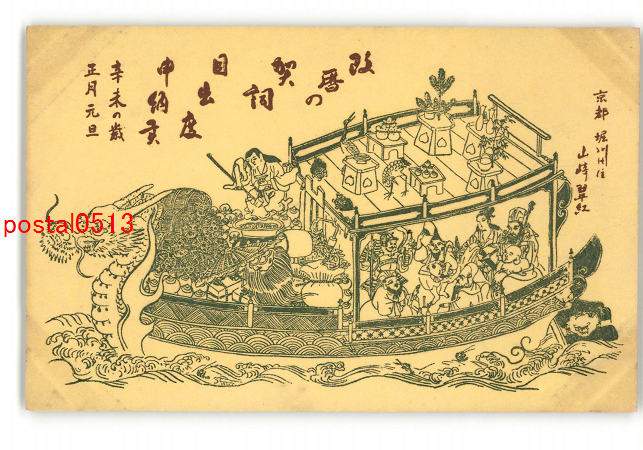 改暦の
賀詞
目出度
申納貢
辛未の歳
正月元旦
京都 堀川川住
山崎翠紅
postal0513